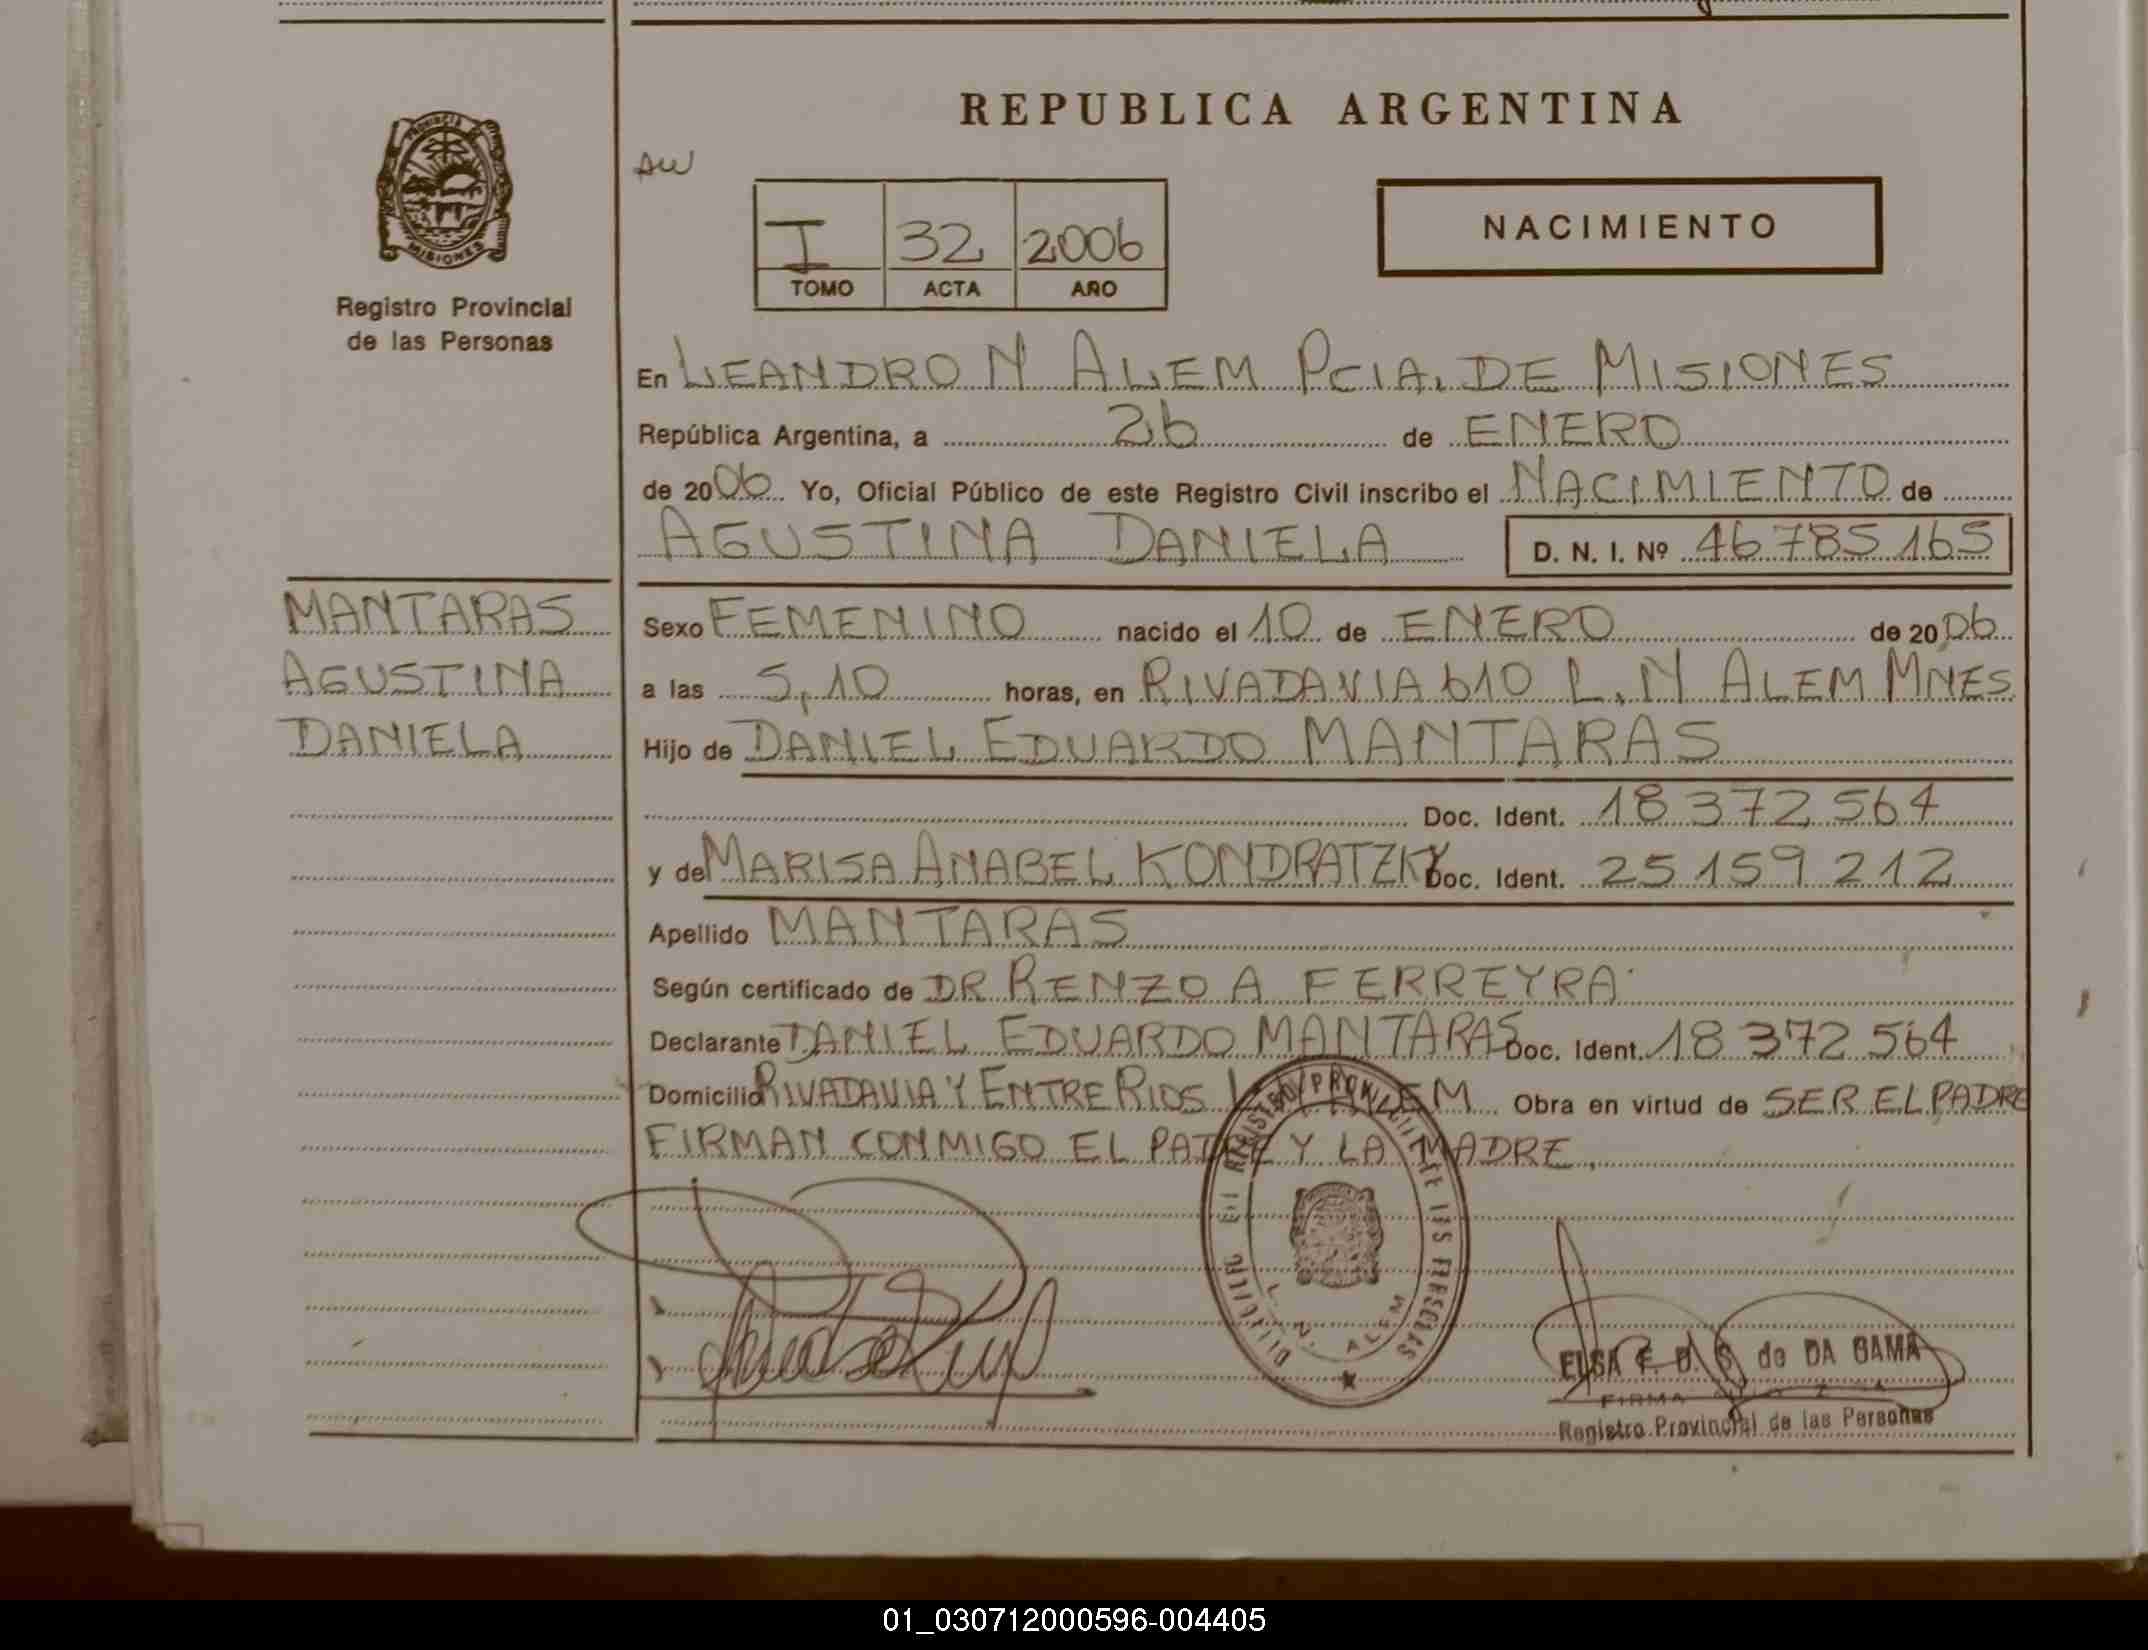 REPUBLICA ARGENTINA
PROVINCIA
MISIONES
Registro Provincial
de las Personas
AW
I 32 2006
TOMO ACTA AÑO
NACIMIENTO
En LEANDRO N ALEM PCIA. DE MISIONES
República Argentina, a 26 de ENERO
de 2006 Yo, Oficial Público de este Registro Civil inscribo el NACIMIENTO de
AGUSTINA DANIELA D. N. I. Nº 46785165
MANTARAS
AGUSTINA
DANIELA
Sexo FEMENINO nacido el 10 de ENERO de 2006
a las 5,10 horas, en RIVADAVIA 610 L. N ALEM MNES
Hijo de DANIEL EDUARDO MANTARAS
Doc. Ident. 18 372 564
y de MARISA ANABEL KONDRATZKY Doc. Ident. 25 159 212
Apellido MANTARAS
Según certificado de DR RENZO A FERREYRA
Declarante DANIEL EDUARDO MANTARAS Doc. Ident. 18 372 564
Domicilio RIVADAVIA Y ENTRE RIOS L N ALEM Obra en virtud de SER EL PADRE
FIRMAN CONMIGO EL PADRE Y LA MADRE.
L. N. ALEM
ELSA F. D. S. de DA GAMA
FIRMA
Registro Provincial de las Personas
01_030712000596-004405